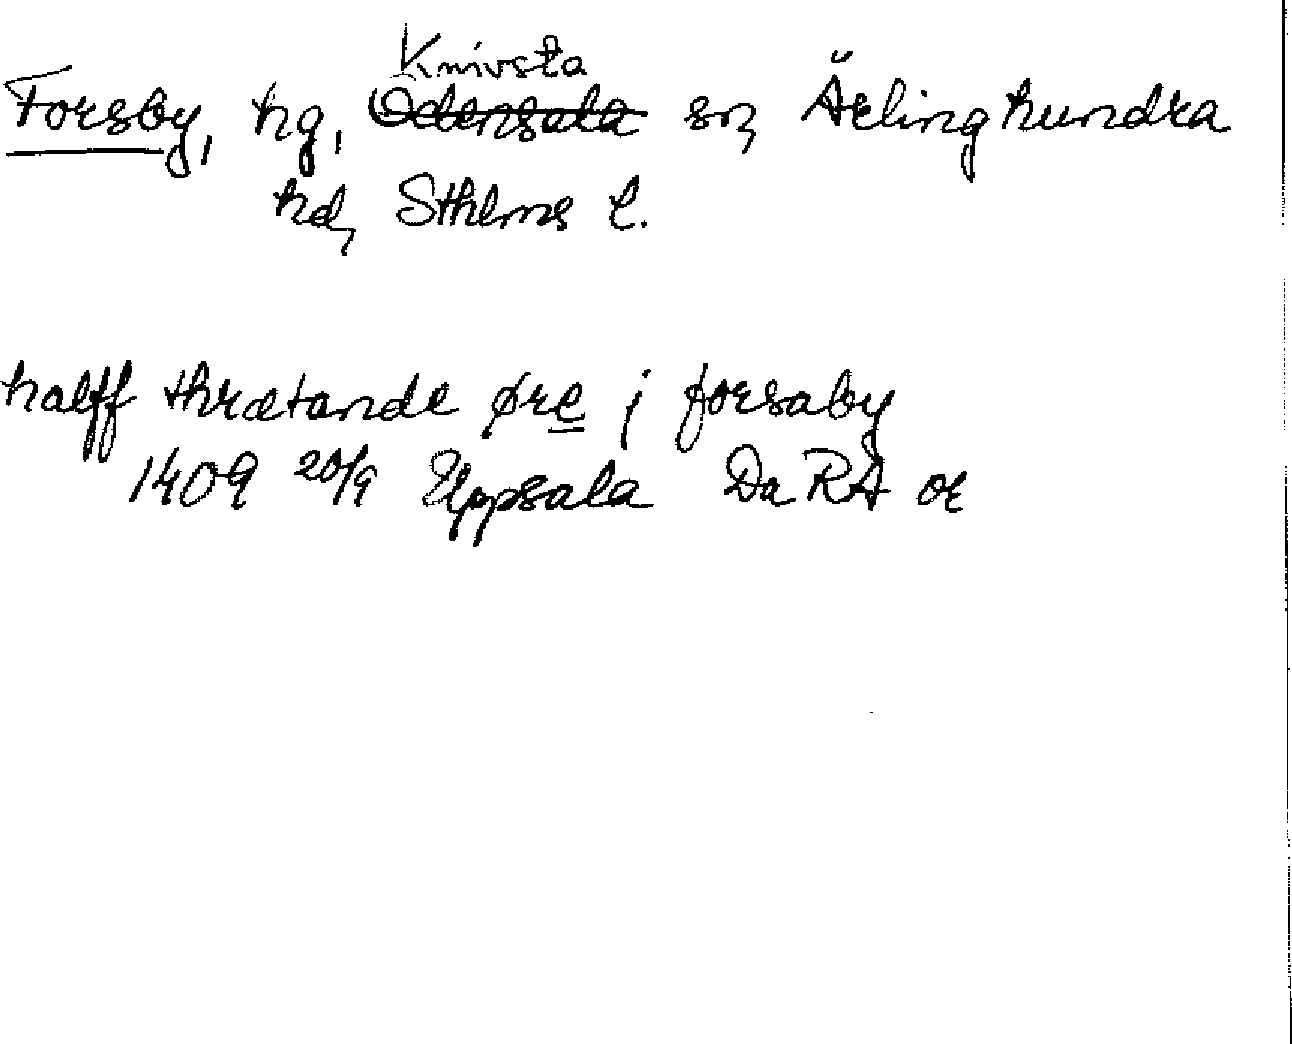 Knivsta
Forsby, hg, Odensala sn, Ärlinghundra
hd, Sthlms l.
halff thrætande øre j forsaby
1409 20/9 Uppsala Da RA or